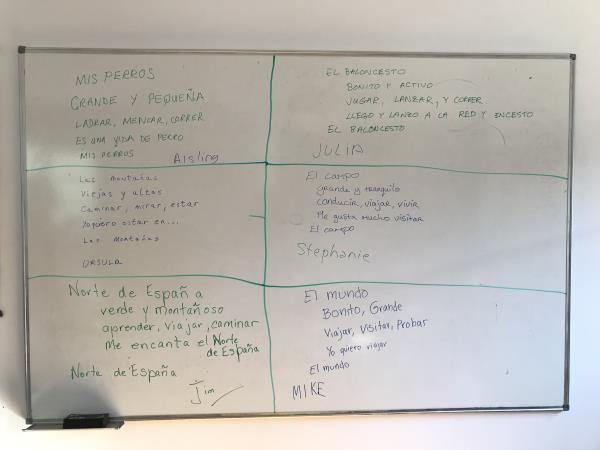 MIS PERROS
GRANDE Y PEQUEÑA
LADRAR, MENEAR, CORRER
ES UNA VIDA DE PERRO
MIS PERROS
Aisling
EL BALONCESTO
BONITO Y ACTIVO
JUGAR, LANZAR, Y CORRER
LLEGO Y LANZO A LA RED Y ENCESTO
EL BALONCESTO
JULIA
Las montañas
Viejas y altas
Caminar, mirar, estar
Yo quiero estar en...
Las Montañas
URSULA
El campo
Grande y tranquilo
Conducir, viajar, vivir
Me gusta mucho visitar
El campo
Stephanie
Norte de España
verde y montañoso
aprender, viajar, caminar
Me encanta el Norte
de España
Norte de España
Jim
El mundo
Bonito, Grande
Viajar, Visitar, Probar
Yo quiero viajar
El mundo
MIKE